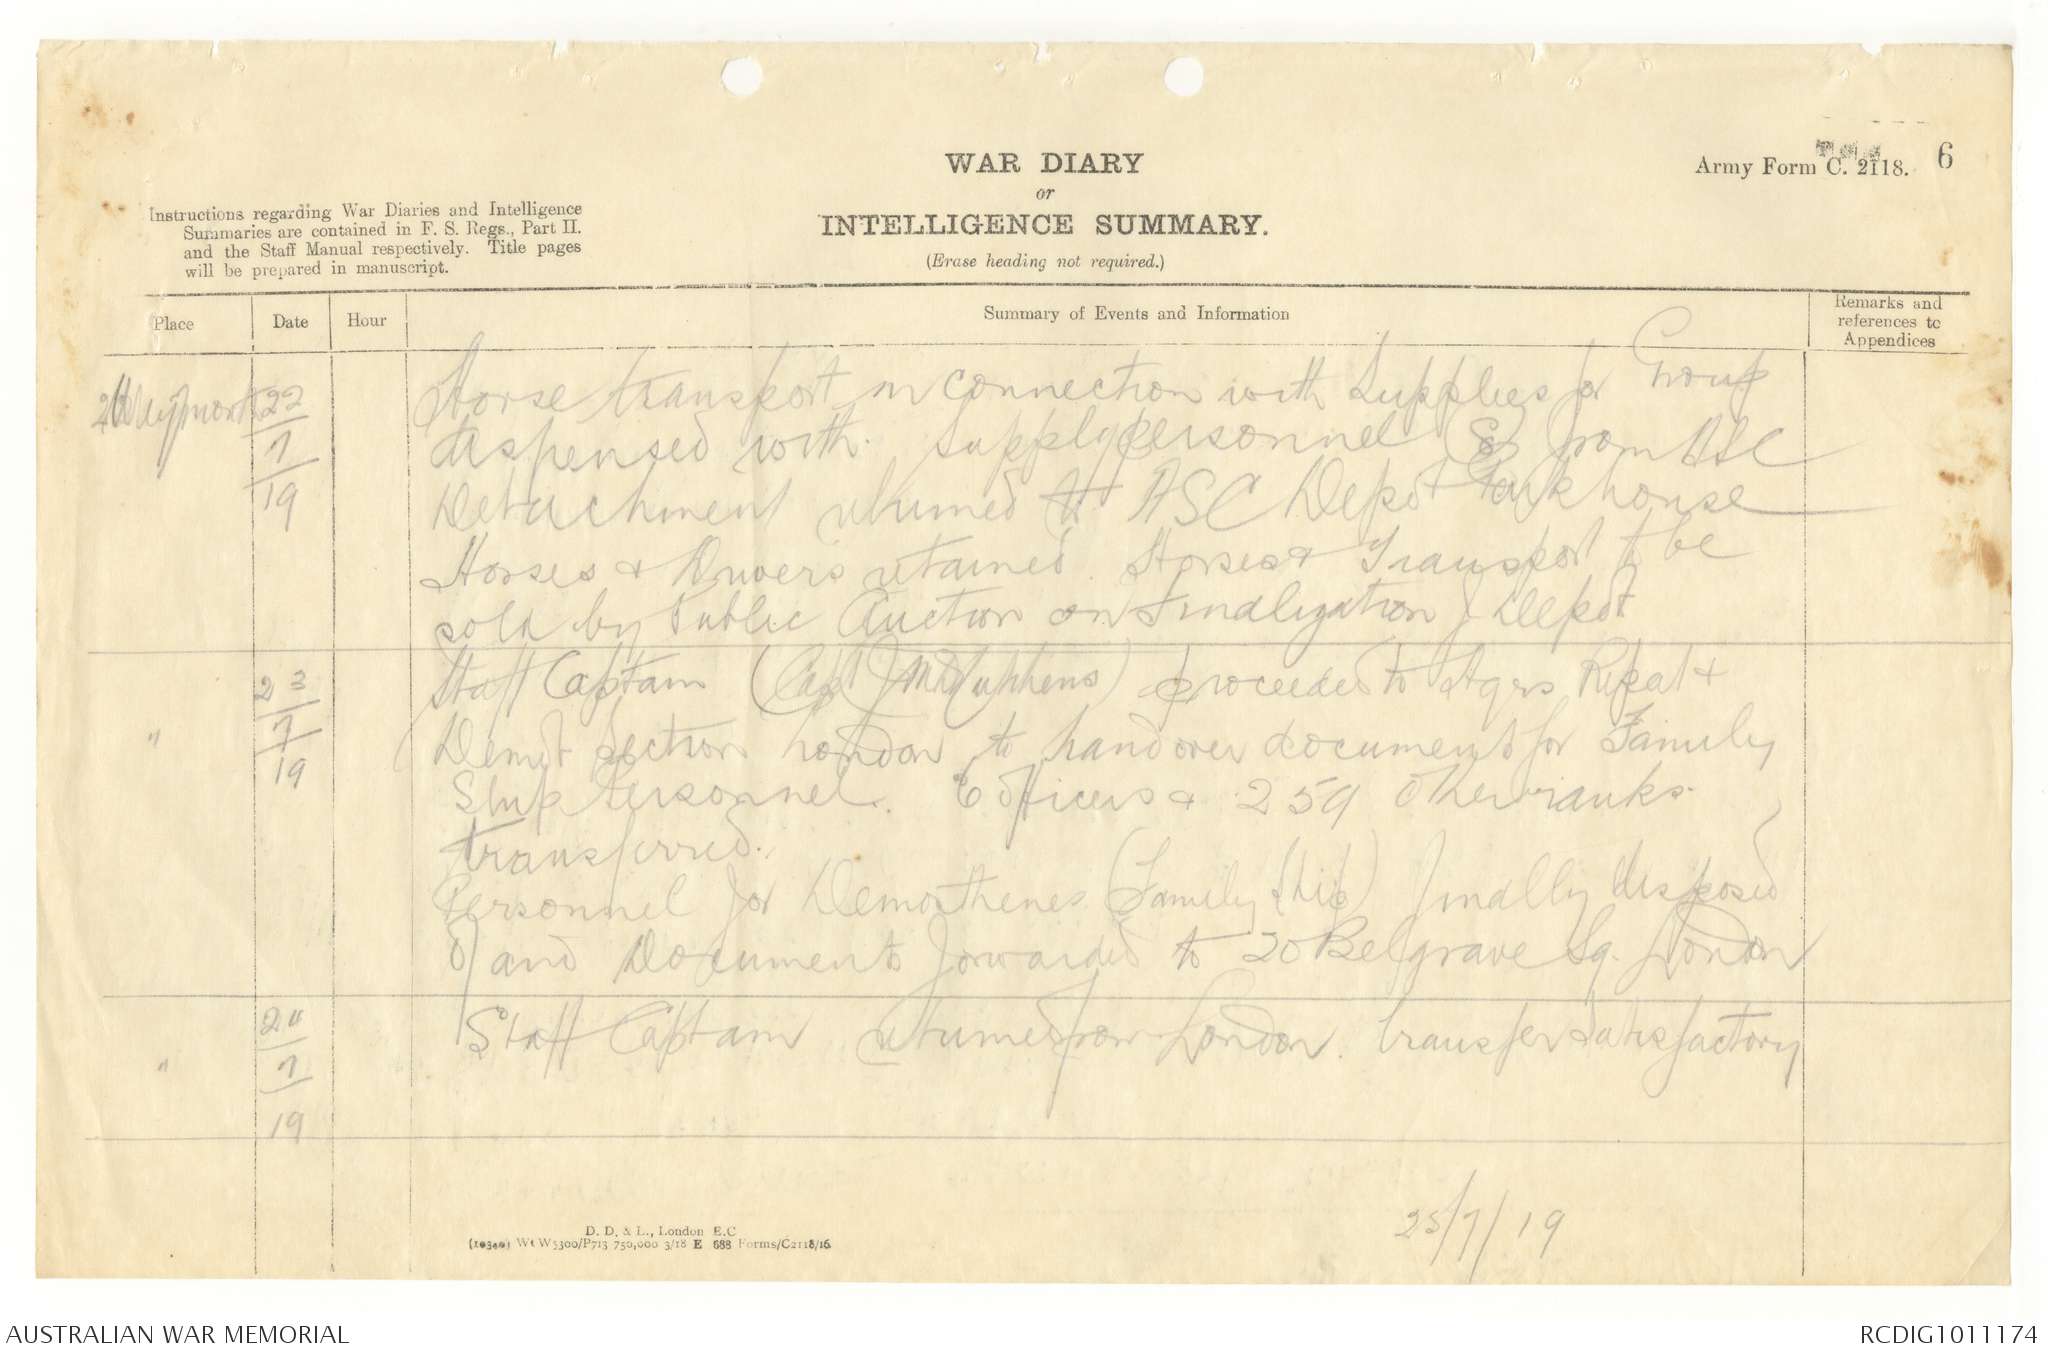 WAR DIARY
or
INTELLIGENCE SUMMARY.
(Erase heading not required.)
Army Form C. 2118. 6
Instructions regarding War Diaries and Intelligence
Summaries are contained in F. S. Regs., Part II.
and the Staff Manual respectively. Title pages
will be prepared in manuscript.
Place Date Hour Summary of Events and Information Remarks and references to Appendices
22/7/19
Horse transport in connection with Supplies for Group
dispensed with. Supply personnel from ASC
Detachment returned to ASC Depot Parkhouse
Horses & Drivers retained. Horses & Transport to be
sold by Public Auction on Finalization of Depot
" 23/7/19
Staff Captain (Capt proceeded to Hqrs Repat &
Demob Section London to hand over documents for Family
Ship Personnel. 6 Officers & 259 Other ranks
transferred.
Personnel for Demosthenes (Family Ship) finally disposed
of and Documents forwarded to 20 Belgrave Sq. London
" 24/7/19
Staff Captain returned from London. Transfer satisfactory
25/7/19
D. D. & L., London E.C
(10340) Wt W5300/P713 750,000 3/18 E 688 Forms/C2118/16
AUSTRALIAN WAR MEMORIAL
RCDIG1011174